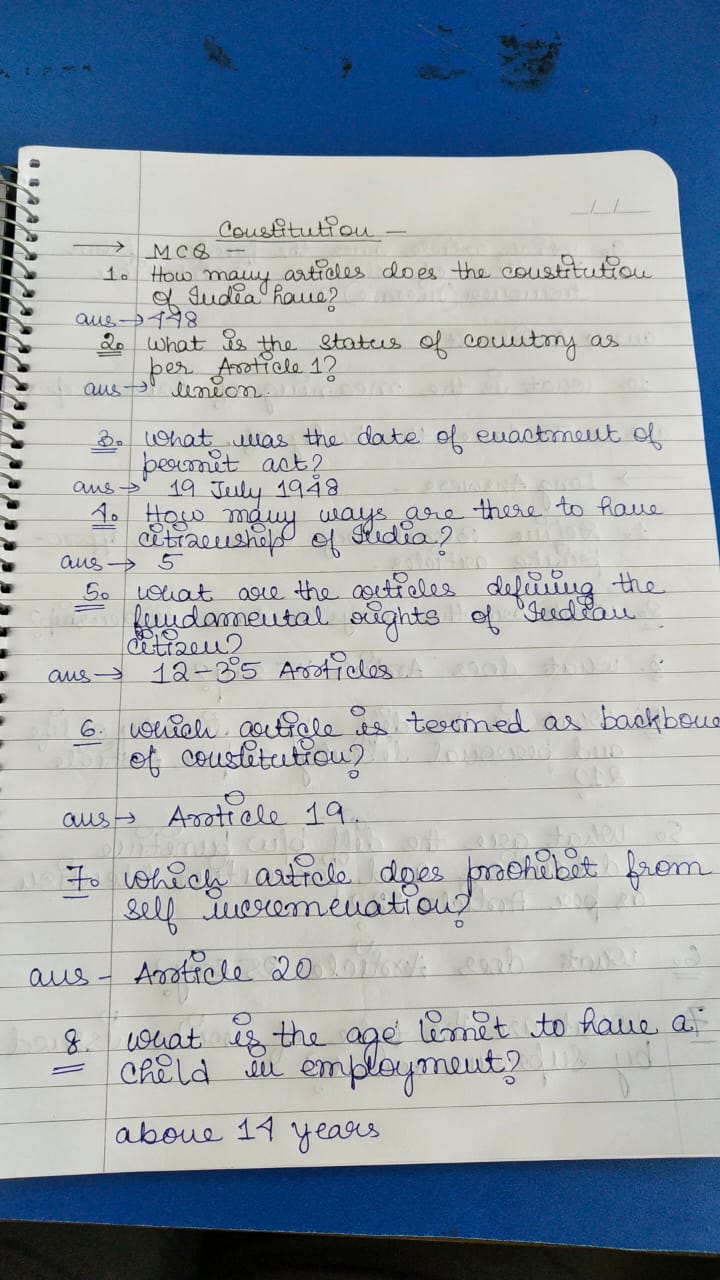 _/_/_
Constitution —
→ MCQ —
1. How many articles does the constitution
of India have?
ans → 448
2. What is the status of country as
per Article 1?
ans → union.
3. What was the date of enactment of
permit act?
ans → 19 July 1948
4. How many ways are there to have
citizenship of India?
ans → 5
5. what are the articles defining the
fundamental rights of Indian
citizen?
ans → 12-35 Articles
6. which article is termed as backbone
of constitution?
ans → Article 19.
7. which article does prohibit from
self incremenation?
ans - Article 20
8. what is the age limit to have a
child in employment?
above 14 years